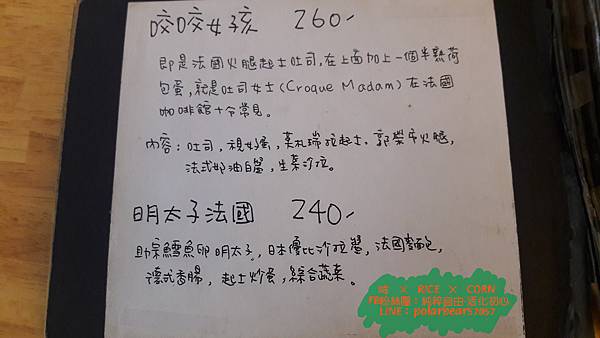 咬咬女孩 260/-
即是法國火腿起士吐司,在上面加上一個半熟荷
包蛋,就是吐司女士(Croque Madam)在法國
咖啡館十分常見。
內容:吐司,太陽蛋,莫札瑞拉起士、郭榮市火腿,
法式奶油白醬,生菜沙拉。
明太子法國 240/-
助宗鱈魚卵明太子,日本優比沙拉醬,法國麵包,
德式香腸,起士炒蛋,綜合蔬菜。
咔 × RICE × CORN
FB粉絲團:純粹自由·活化初心
LINE:polarbear57057